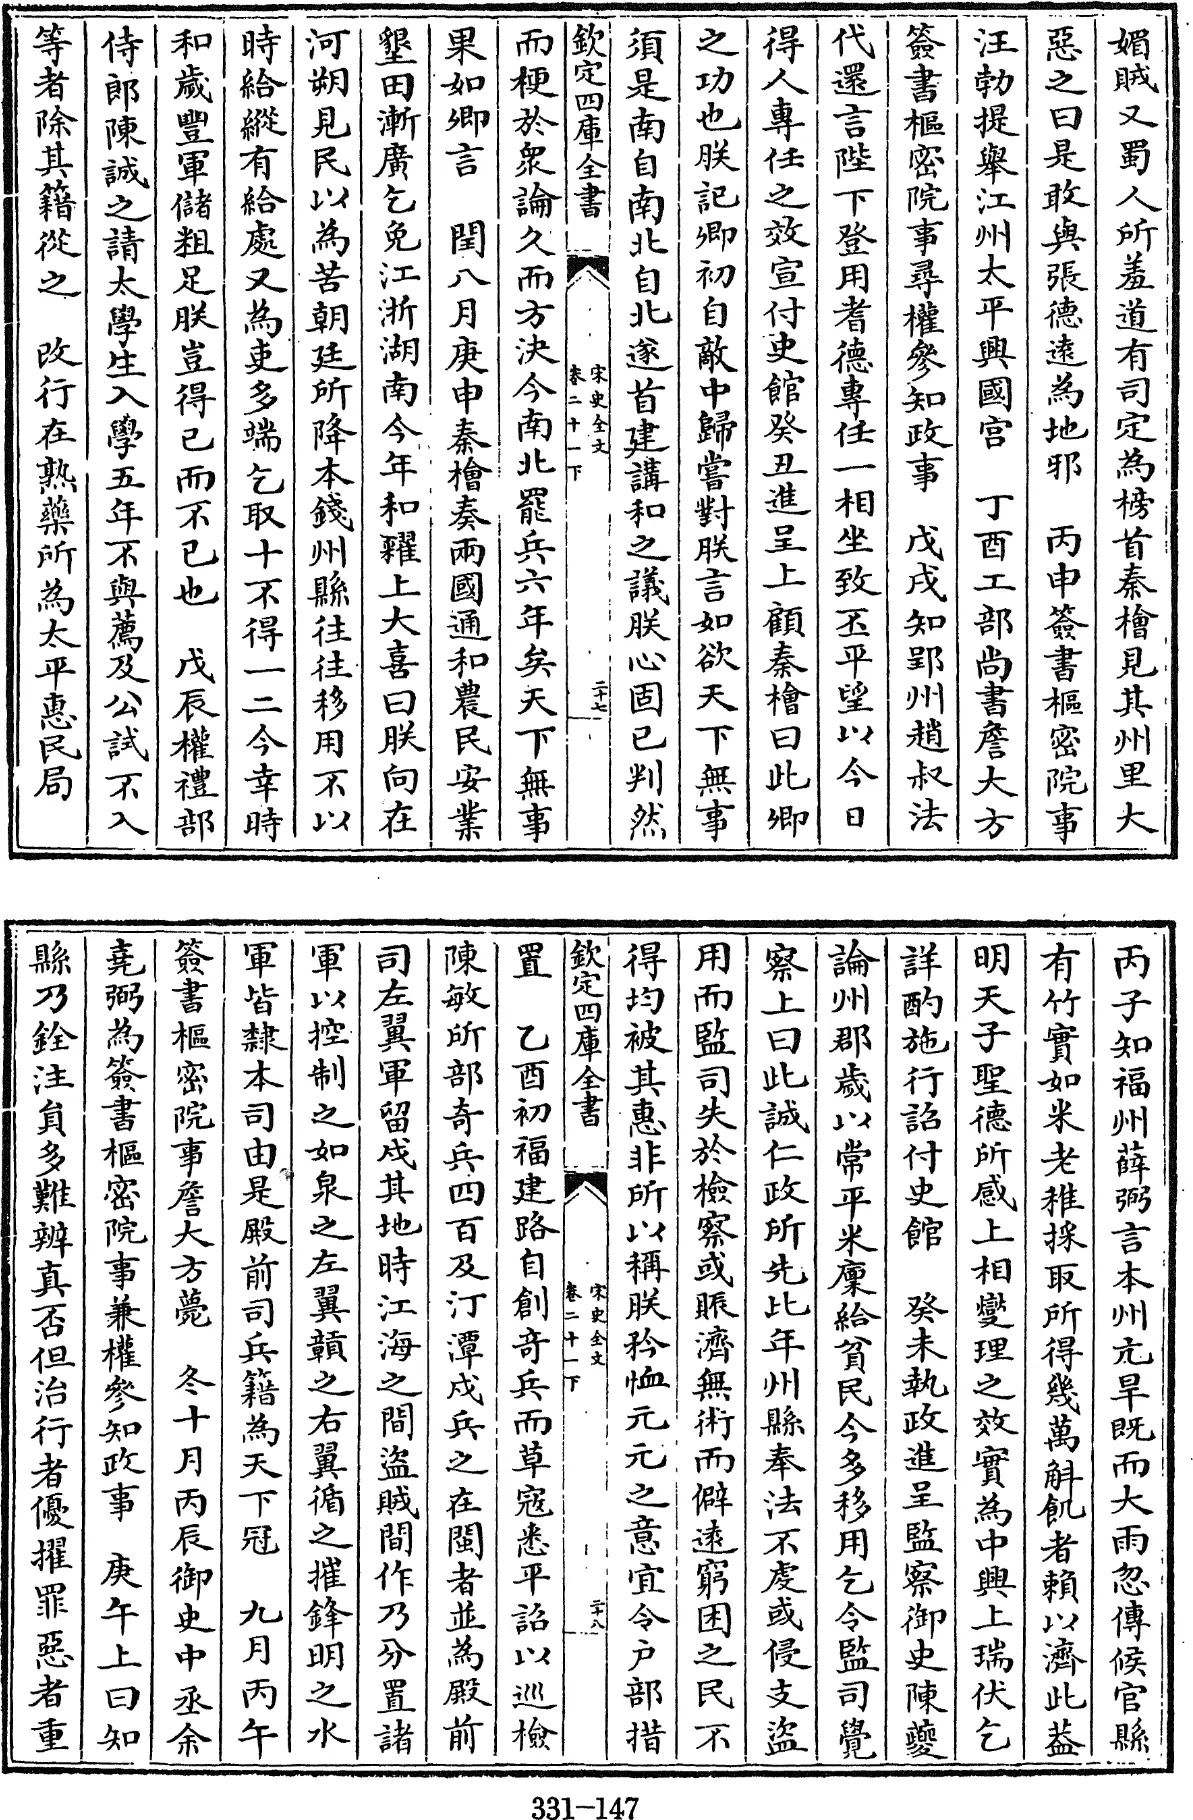 媚賊又蜀人所羞道有司定為榜首秦檜見其州里大
惡之曰是敢與張德逺為地邪　丙申簽書樞密院事
汪勃提舉江州太平興國宫　丁酉工部尚書詹大方
簽書樞密院事尋權參知政事　戊戌知郢州趙叔法
代還言陛下登用耆德專任一相坐致丕平望以今日
得人專任之效宣付史館癸丑進呈上顧秦檜曰此卿
之功也朕記卿初自敵中歸嘗對朕言如欲天下無事
須是南自南北自北遂首建講和之議朕心固已判然
欽定四庫全書
宋史全文
卷二十一下
二十七
而梗於衆論久而方決今南北罷兵六年矣天下無事
果如卿言　閏八月庚申秦檜奏兩國通和農民安業
墾田漸廣乞免江浙湖南今年和糴上大喜曰朕向在
河朔見民以為苦朝廷所降本錢州縣往往移用不以
時給縱有給處又為吏多端乞取十不得一二今幸時
和歲豐軍儲粗足朕豈得已而不已也　戊辰權禮部
侍郎陳誠之請太學生入學五年不與薦及公試不入
等者除其籍從之　改行在熟藥所為太平惠民局
丙子知福州薛弼言本州亢旱既而大雨忽傳候官縣
有竹實如米老稚採取所得幾萬斛飢者賴以濟此葢
明天子聖德所感上相燮理之效實為中興上瑞伏乞
詳酌施行詔付史館　癸未執政進呈監察御史陳夔
論州郡歲以常平米廩給貧民今多移用乞令監司覺
察上曰此誠仁政所先比年州縣奉法不虔或侵支盜
用而監司失於檢察或賑濟無術而僻逺窮困之民不
得均被其惠非所以稱朕矜恤元元之意宜令户部措
欽定四庫全書
宋史全文
卷二十一下
二十八
置　乙酉初福建路自創奇兵而草宼悉平詔以巡檢
陳敏所部奇兵四百及汀潭戍兵之在閩者並為殿前
司左翼軍留戍其地時江海之間盜賊間作乃分置諸
軍以控制之如泉之左翼贛之右翼循之摧鋒明之水
軍皆隸本司由是殿前司兵籍為天下冠　九月丙午
簽書樞密院事詹大方薨　冬十月丙辰御史中丞余
堯弼為簽書樞密院事兼權參知政事　庚午上曰知
縣乃銓注員多難辨真否但治行者優擢罪惡者重
331-147